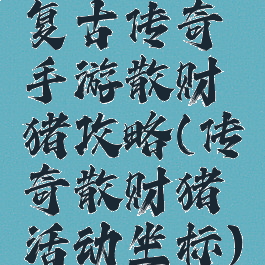 复古传奇
手游散财
猪攻略(传
奇散财猪
活动坐标)